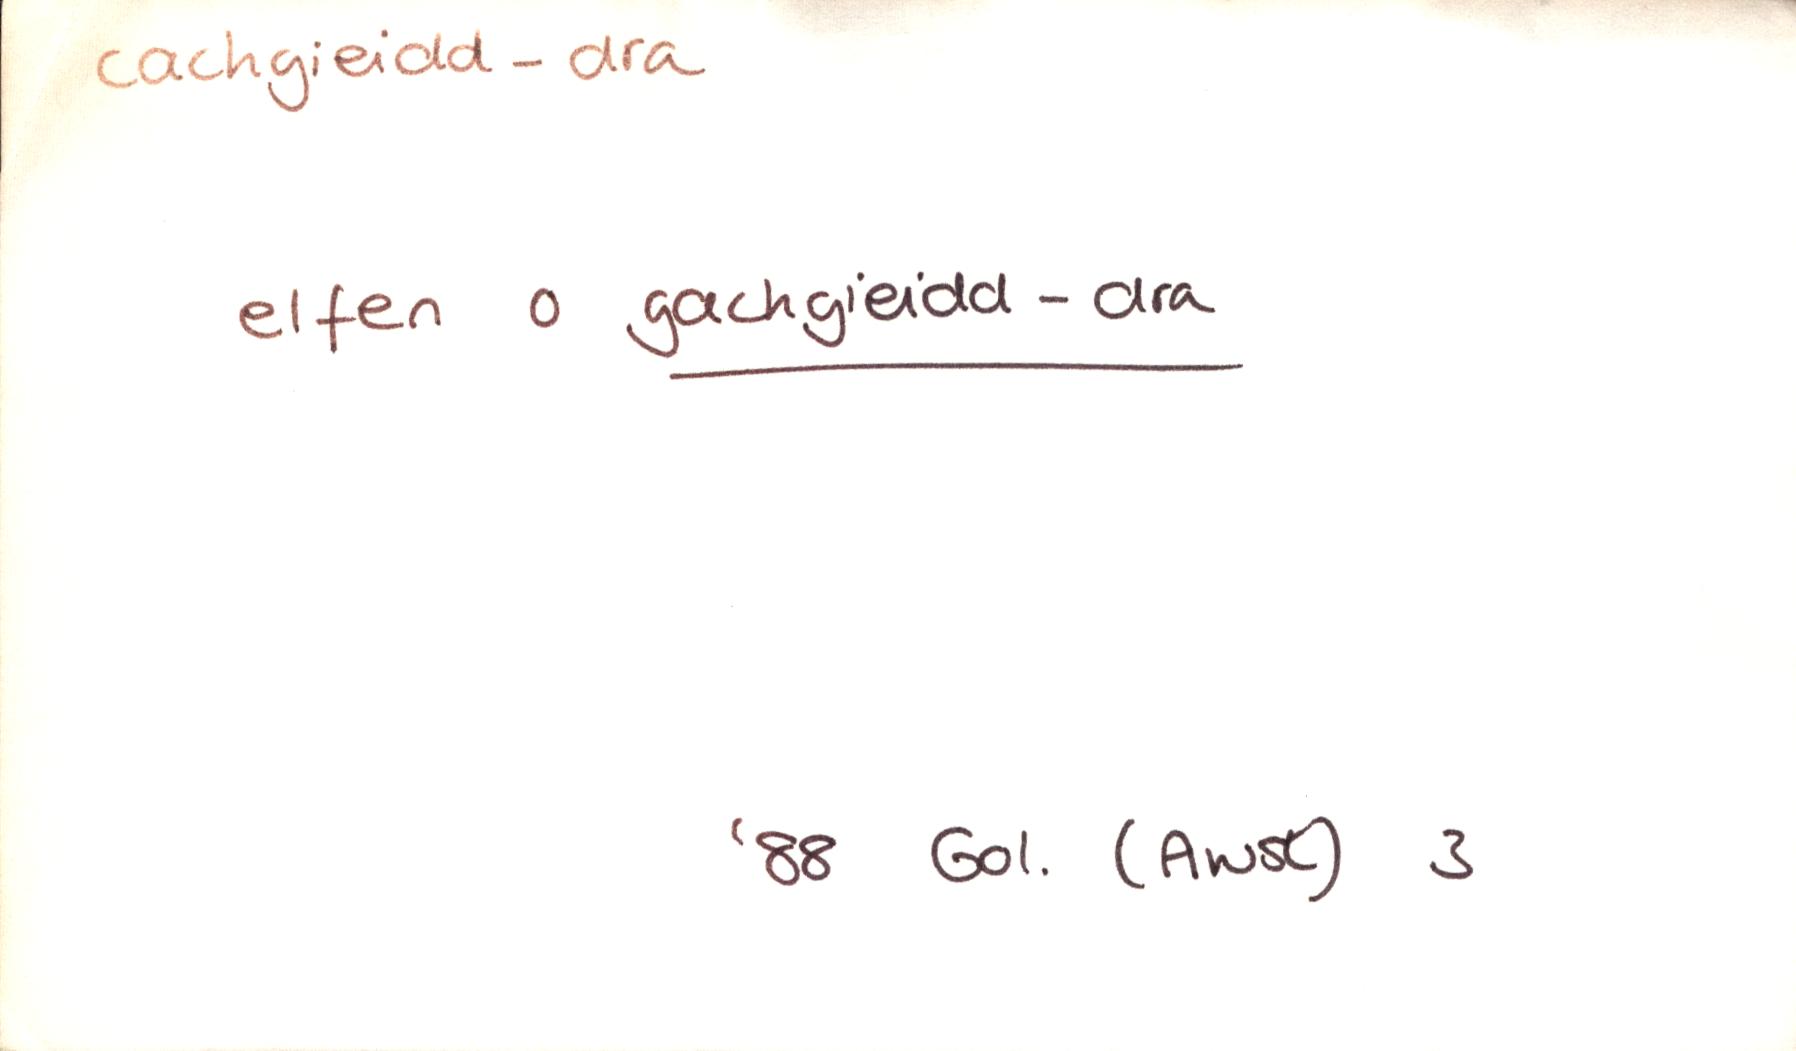 cachgïeidd-dra
elfen o gachgïeidd-dra
'88 Gol. (Awst) 3